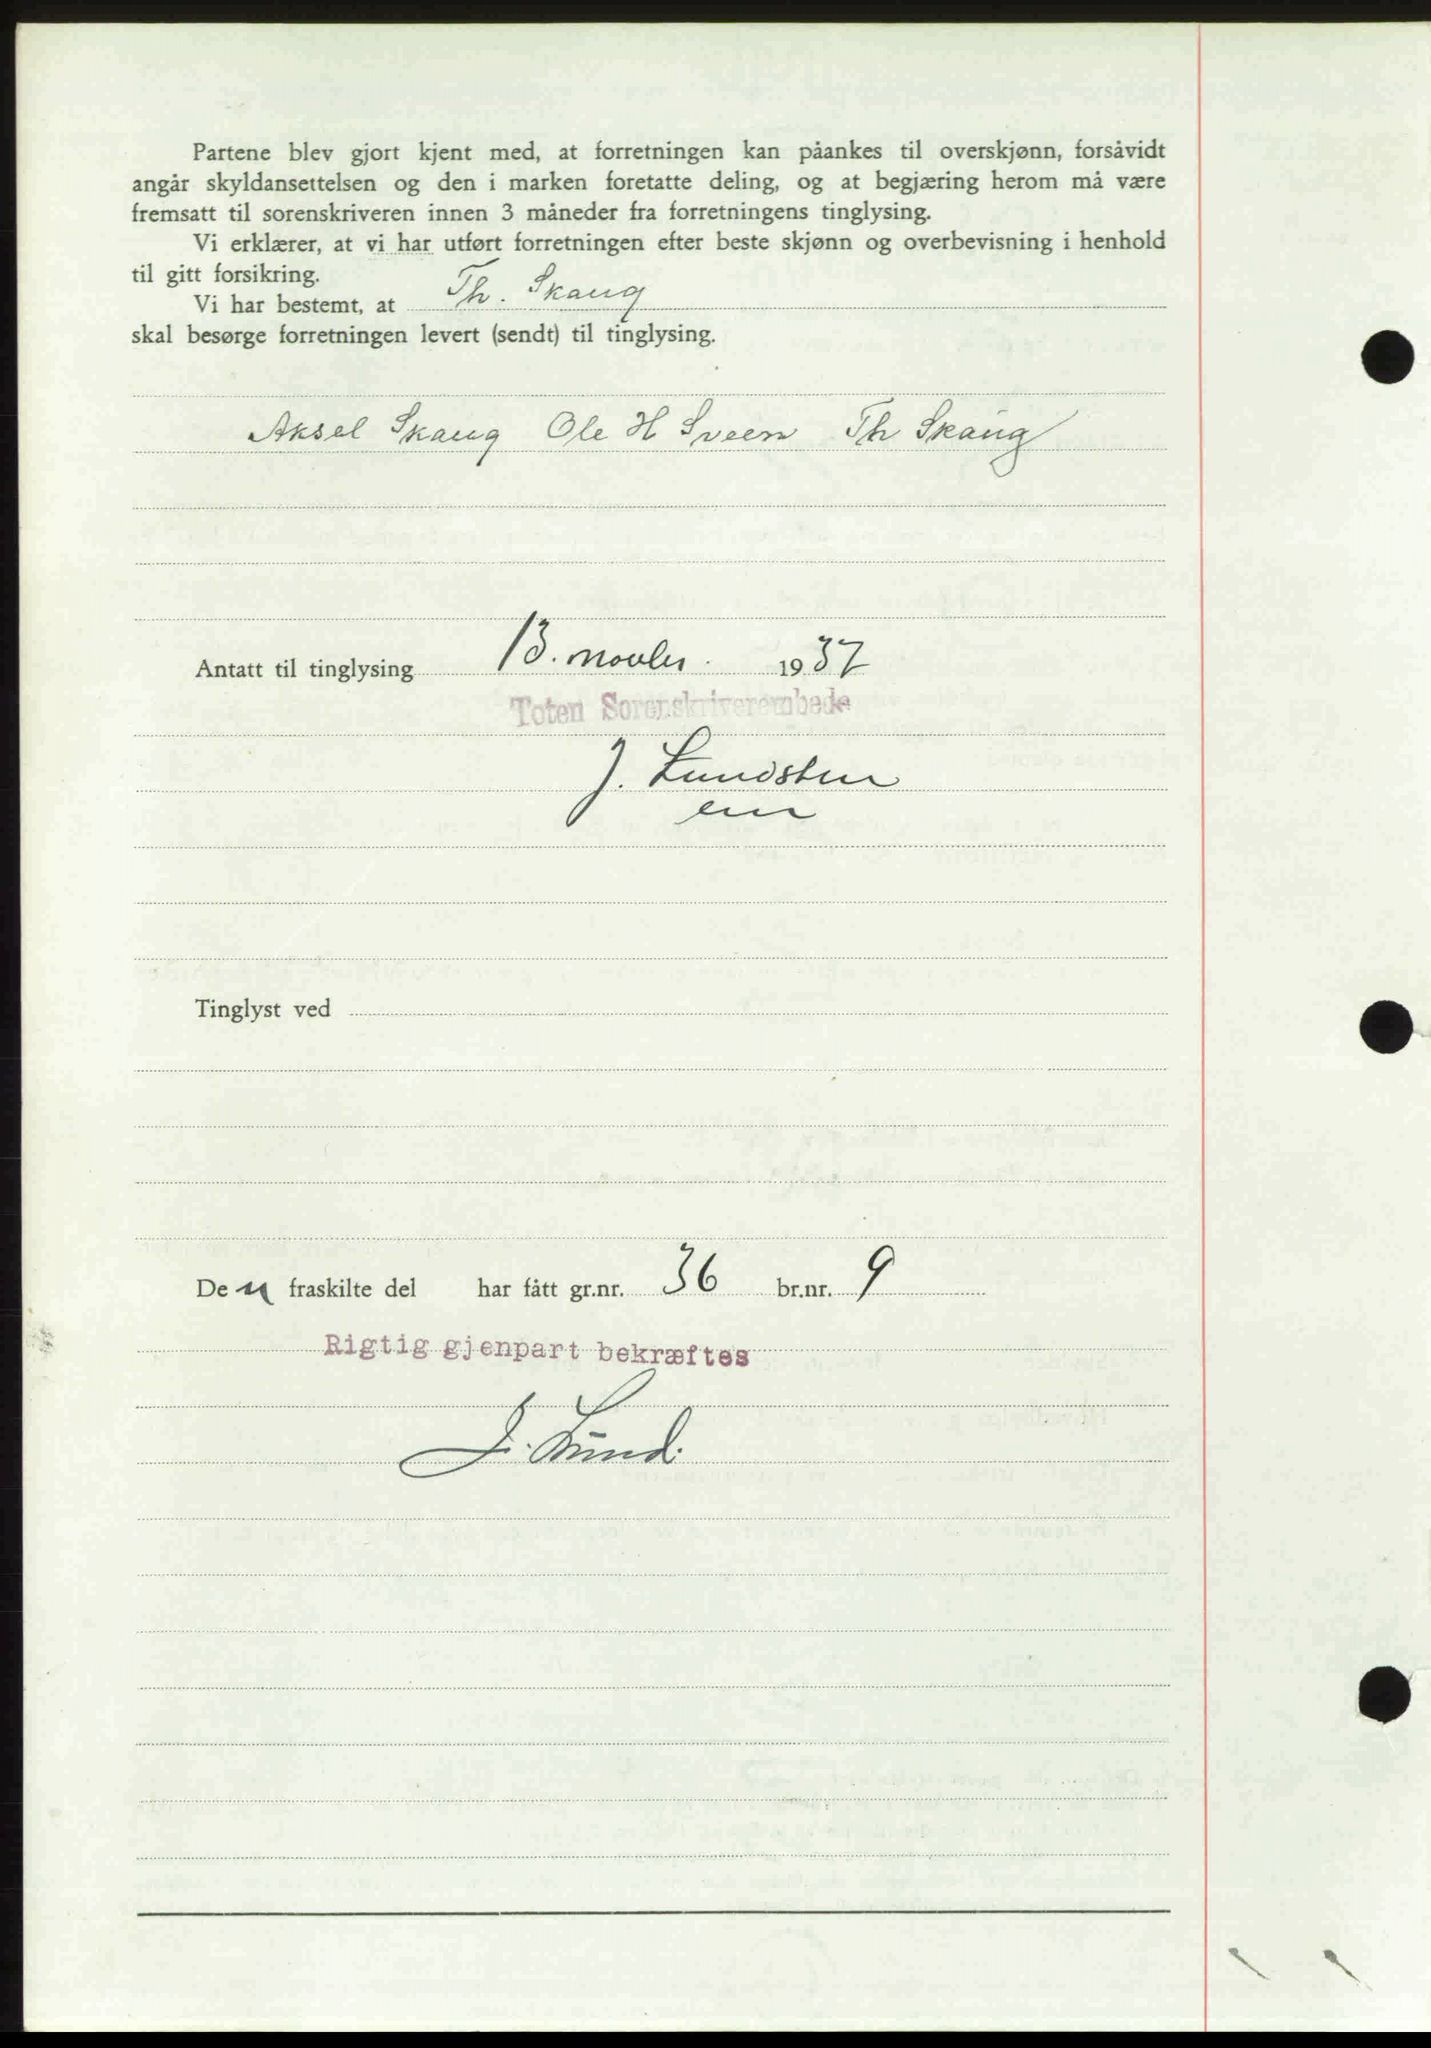 Partene blev gjort kjent med, at forretningen kan påankes til overskjønn, forsåvidt
angår skyldansettelsen og den i marken foretatte deling, og at begjæring herom må være
fremsatt til sorenskriveren innen 3 måneder fra forretningens tinglysing.
Vi erklærer, at vi har utført forretningen efter beste skjønn og overbevisning i henhold
til gitt forsikring.
Vi har bestemt, at Th. Skaug
skal besørge forretningen levert (sendt) til tinglysing.
Aksel Skaug Ole H Sveen Th Skaug
Antatt til tinglysing 13. novbr. 1937
Toten Sorenskriverembede
J. Lundsten
De n fraskilte del har fått gr.nr. 36 br.nr. 9
Tinglyst ved
Rigtig gjenpart bekræftes
J. Lund.